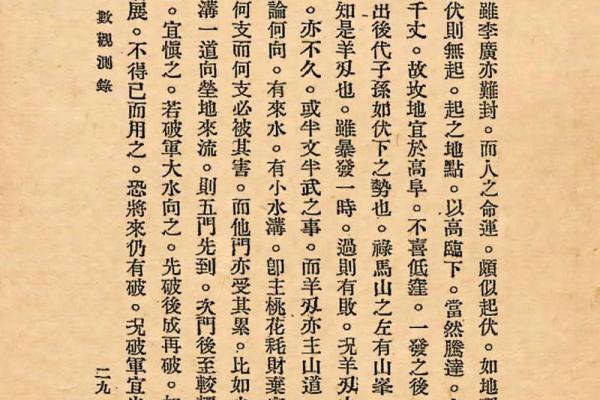 雖李廣亦難封。而人之命運。頗似起伏。如地理
伏則無起。起之地點。以高臨下。當然騰達。
千丈。故坟地宜於高阜。不喜低窪。一發之後
出後代子孫如伏下之勢也。祿馬山之左有山峯
知是羊刄也。雖暴發一時。過則有敗。况羊刄
。亦不久。或半文半武之事。而羊刄亦主山道
論何向。有來水。有小水溝。卽主桃花耗財棄
何支而何支必被其害。而他門亦受其累。比如
溝一道向塋地來流。則五門先到。次門後至較
。宜愼之。若破軍大水向之。先破後成再破。
展。不得已而用之。恐將來仍有破。况破軍宜
數觀測錄
二九